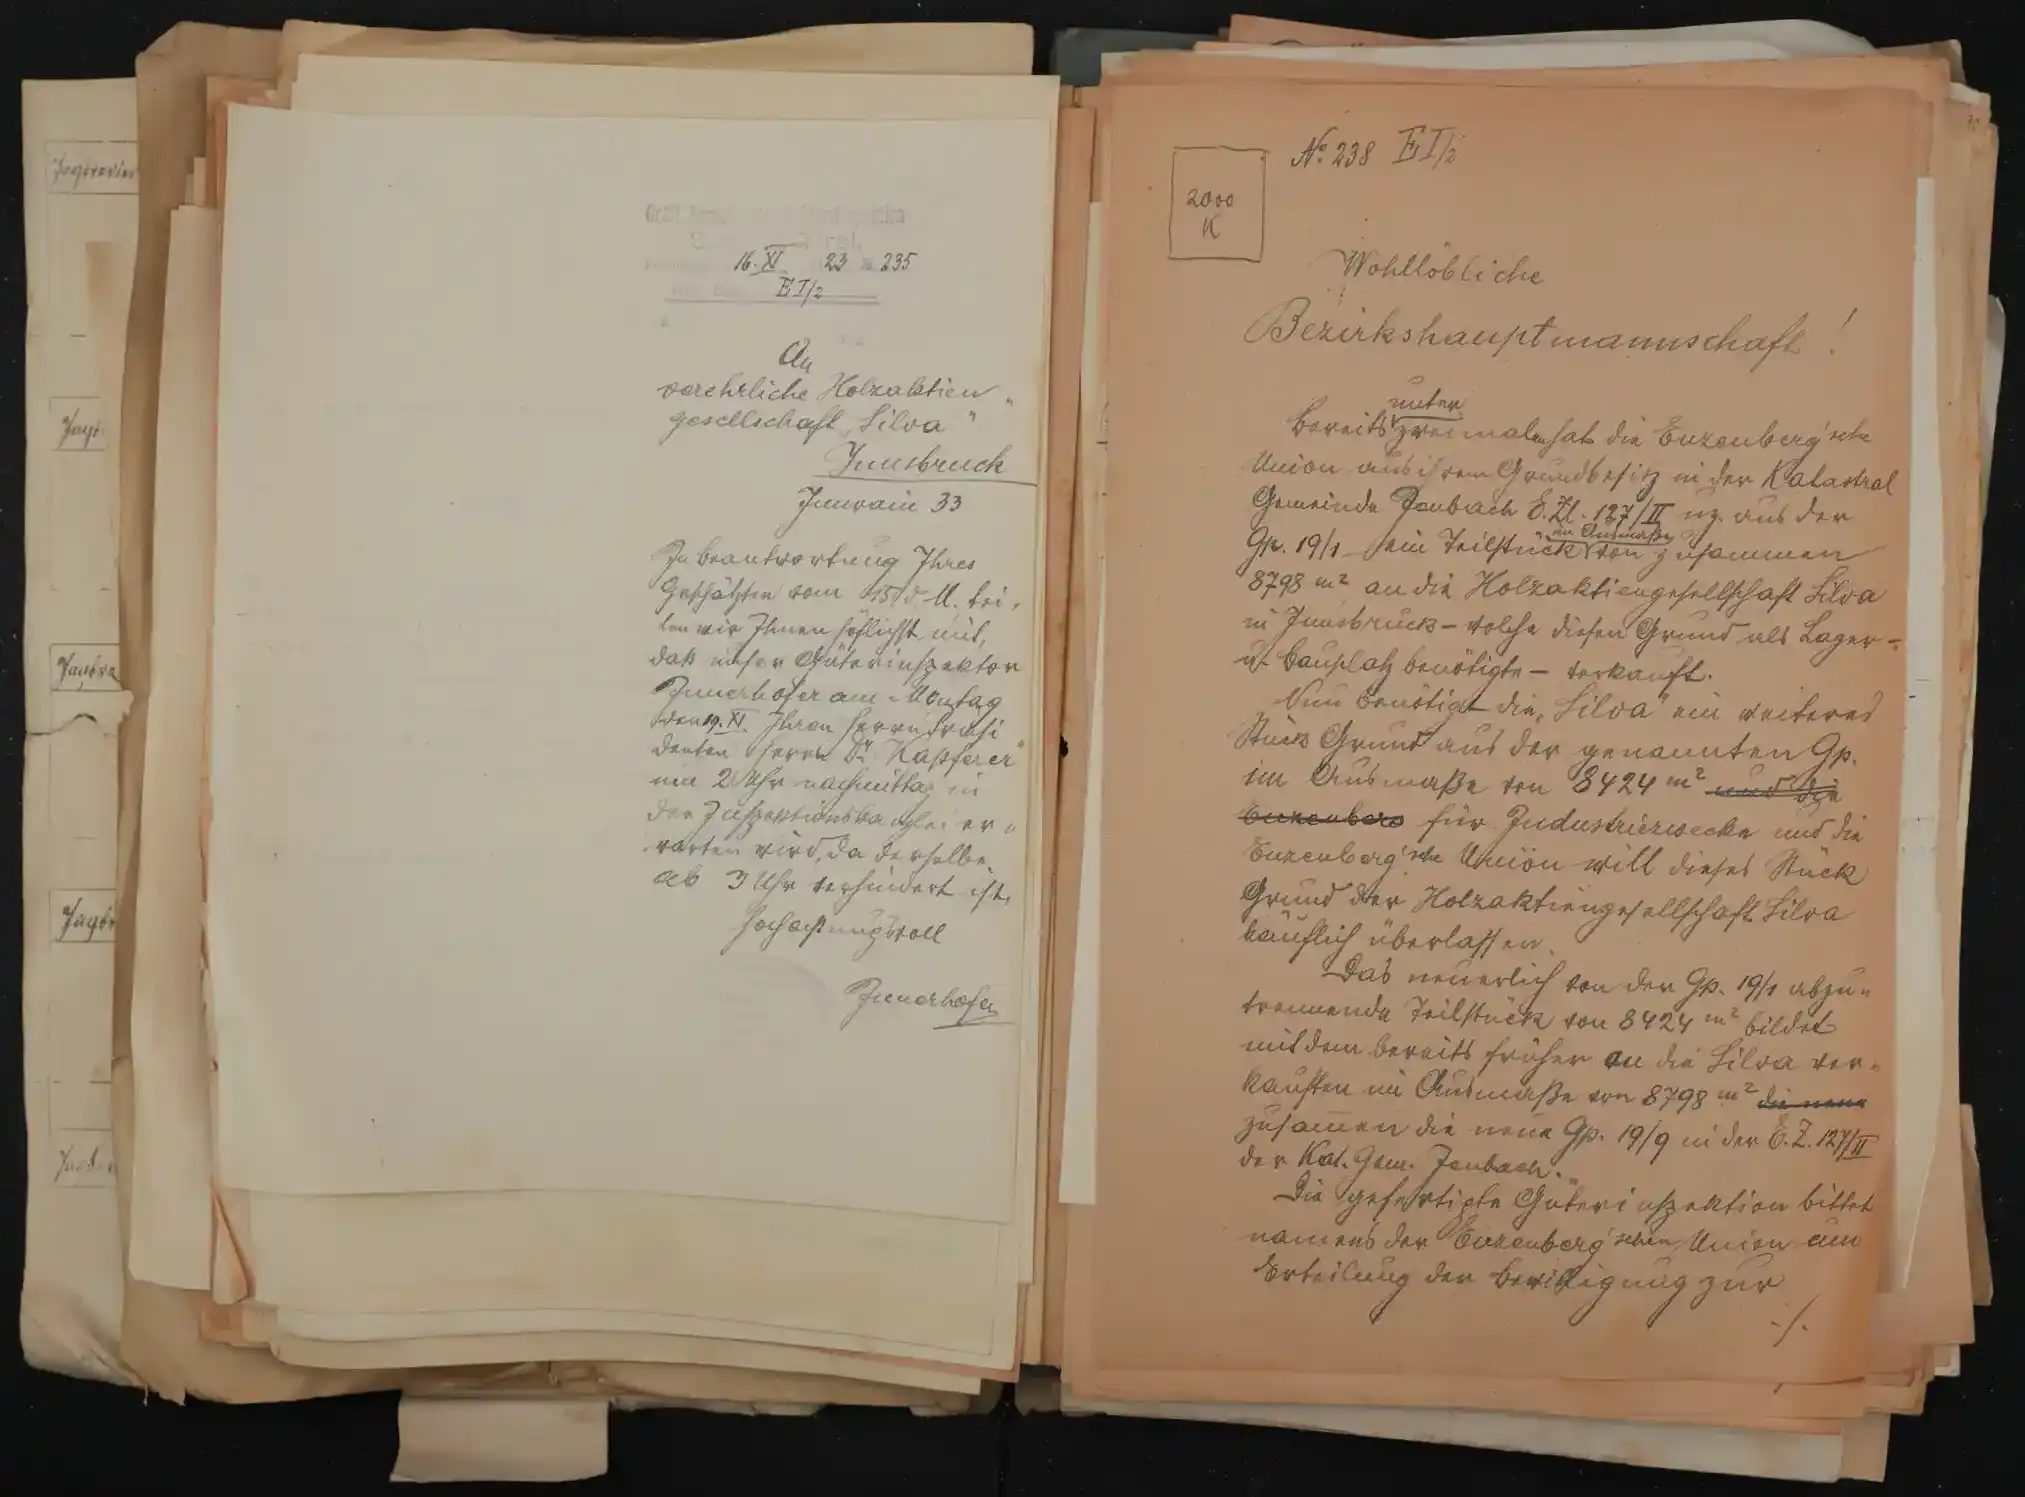 Jagdrevier
Jagd
Jagdre
Jagdr
16. XI 23 235
E I/2
An
verehrliche Holzaktien„
gesellschaft „Silva“
Innsbruck
Innrain 33
In Beantwortung Ihres
Geschätzten vom 15. d. M. tei„
len wir Ihnen höflichst mit,
daß unser Güterinspektor
Innerhofer am Montag
den 19. XI. Ihren Herrn Präsi
denten Herrn Dr. Kapferer
um 2 Uhr nachmittag in
der Inspektionskanzlei er„
warten wird, da derselbe
ab 3 Uhr verhindert ist.
Hochachtungsvoll
Innerhofer
No. 238 E I/2
2000
K
Wohllöbliche
Bezirkshauptmannschaft!
unter
Bereits zweimalen hat die Enzenberg'sche
Union aus ihrem Grundbesitz in der Katastral
Gemeinde Jenbach E. Zl. 127/II uz. aus der
im Ausmaße
Gp. 19/1 – ein Teilstück von zusammen
8798 m² an die Holzaktiengesellschaft Silva
in Innsbruck – welche diesen Grund als Lager-
u. Bauplatz benötigte – verkauft.
Nun benötigt die „Silva“ ein weiteres
Stück Grund aus der genannten Gp.
im Ausmaße von 8424 m² und die
Enzenberg für Industriezwecke und die
Enzenberg'sche Union will dieses Stück
Grund der Holzaktiengesellschaft Silva
käuflich überlassen.
Das neuerlich von der Gp. 19/1 abzu„
trennende Teilstück von 8424 m² bildet
mit dem bereits früher an die Silva ver„
kauften im Ausmaße von 8798 m² die neue
zusammen die neue Gp. 19/9 in der E. Z. 127/II
der Kat. Gem. Jenbach.
Die gefertigte Güterinspektion bittet
namens der Enzenberg'schen Union um
Erteilung der Bewilligung zur
./.